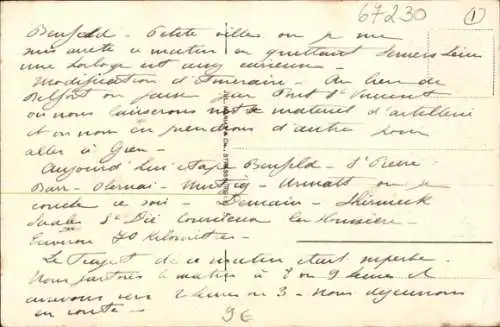 67230 1
Benfeld - Petite ville où je me
suis arrêté ce matin en quittant
une horloge est assez curieuse -
Modification d'itinéraire - Au lieu de
Belfort on passe par Pont St Vincent
où nous laisserons not matériel d'artillerie
et on nous en prendrons d'autre pour
aller à
Aujourd'hui étape Benfeld - St Pierre
Barr - Obernai - Mutzig - Urmatt où je
couche ce soir - Demain - Shirmeck
Saales St Dié
Environ 70 kilomètres -
Le trajet de ce matin était superbe.
Nous partons le matin à 8 ou 9 heures et
arrivons vers 2 heures ou 3 - Nous déjeunons
en route -
9€